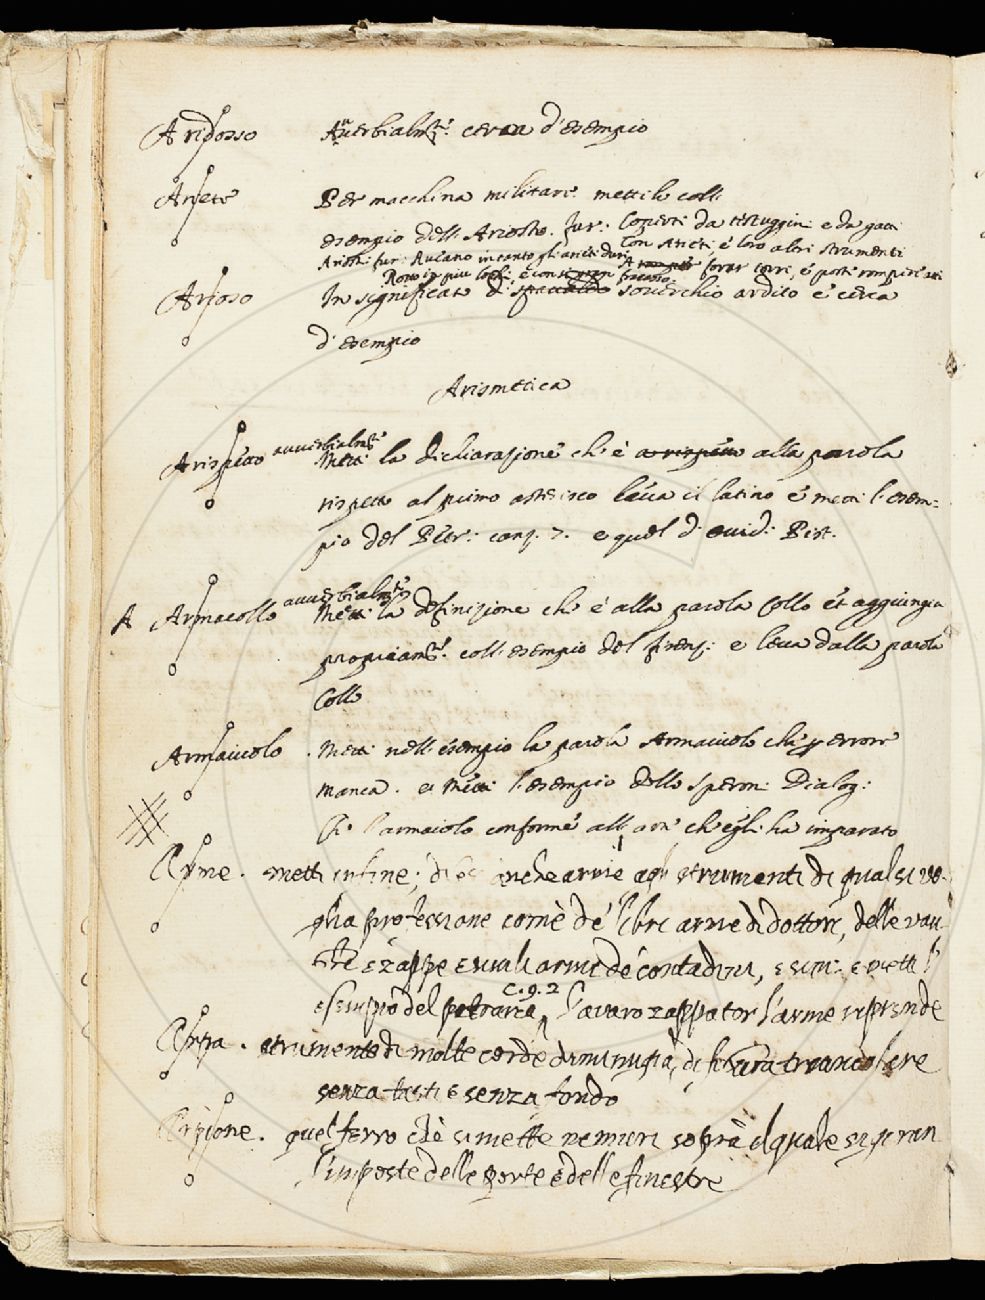 Aridosso Auuerbialm.te cerca d'esempio
Ariete Per macchina militare mettile coll
esempio dell Ariosto. fur: Coperti da testuggini e da gatti
Con Arieti, e loro altri strumenti
Ariost: fur: Ruvano in tanto gli arieti duri
A forar torri, e porte romper
Arioso In significato di spaccato soverchio ardito e cerca
d'esempio
Arismetica
Arispetto auuerbialm.te Metti la dichiarazione ch' è a rispetto alla parola
rispetto al primo asterisco leua il latino e metti l'esem:
pio del Petr: canz. 7. e quel d' Ovid: Pist.
A Armacollo auuerbialm.te Metti la definizione ch' è alla parola Collo et aggiungi
propriam.te coll esempio del firenz: e leua dalla parola
Collo
Armaiuolo. Metti nell' esempio la parola Armaiuolo che p errore
manca. et Metti l'esempio dello Speron: Dialog:
l'armaiolo conforme all arte ch' egli ha imparato
Arme. metti infine; anche arme agli strumenti di qual si vo-
glia professione come de' libri arme di dottori, delle van-
ghe e zappe e simili armi de contadini, e simi: e metti l'
esempio del petrarca c.9.2 l'avaro zappator l'arme riprende
Arpa. strumento di molte corde di minugia, di figura triangolare
senza tasti e senza fondo
Arpione. quel ferro che si mette ne muri sopra il quale si giran
l'imposte delle porte e delle finestre